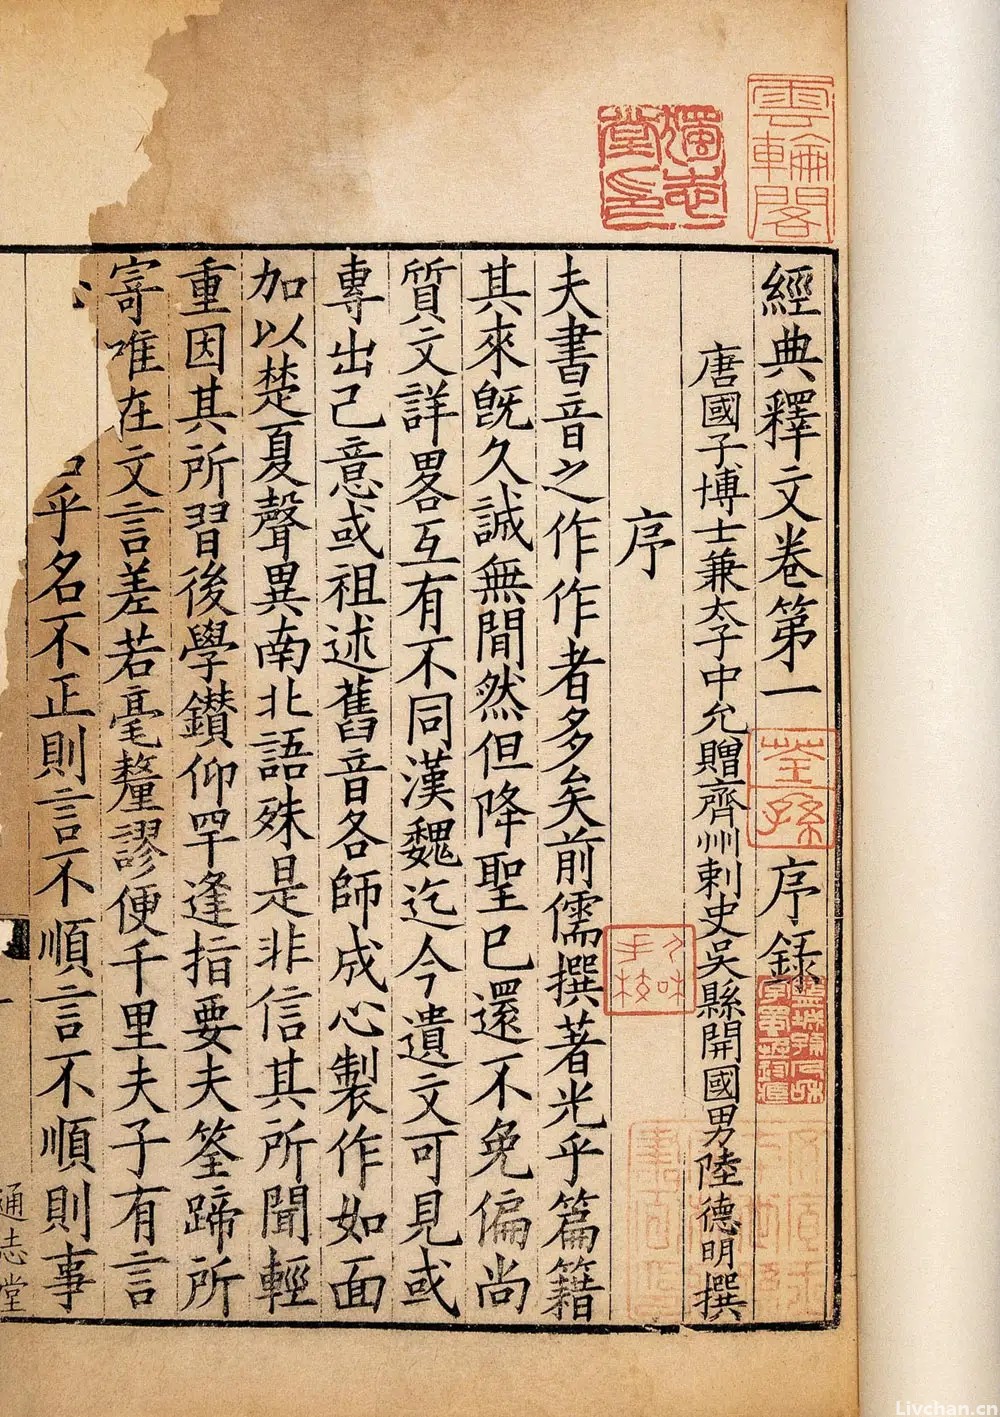 經典釋文卷第一 序録
唐國子博士兼太子中允贈齊州刺史吳縣開國男陸德明撰
序
夫書音之作作者多矣前儒撰著光乎篇籍
其來旣久誠無閒然但降聖已還不免偏尚
質文詳畧互有不同漢魏迄今遺文可見或
專出己意或祖述舊音各師成心製作如面
加以楚夏聲異南北語殊是非信其所聞輕
重因其所習後學鑽仰罕逢指要夫筌蹄所
寄唯在文言差若毫釐謬便千里夫子有言
乎名不正則言不順言不順則事
通志堂
雲輪閣
荃孫
Livchan.cn